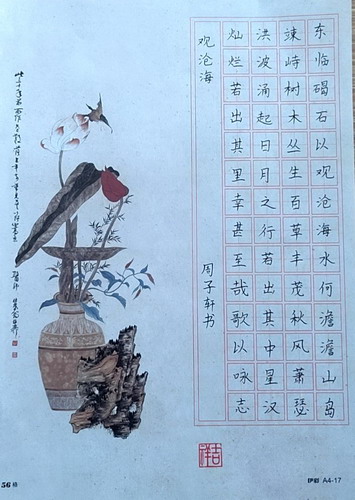 东临碣石以观沧海水何澹澹山岛
竦峙树木丛生百草丰茂秋风萧瑟
洪波涌起日月之行若出其中星汉
灿烂若出其里幸甚至哉歌以咏志
观沧海
周子轩书
吉祥
56格
A4-17